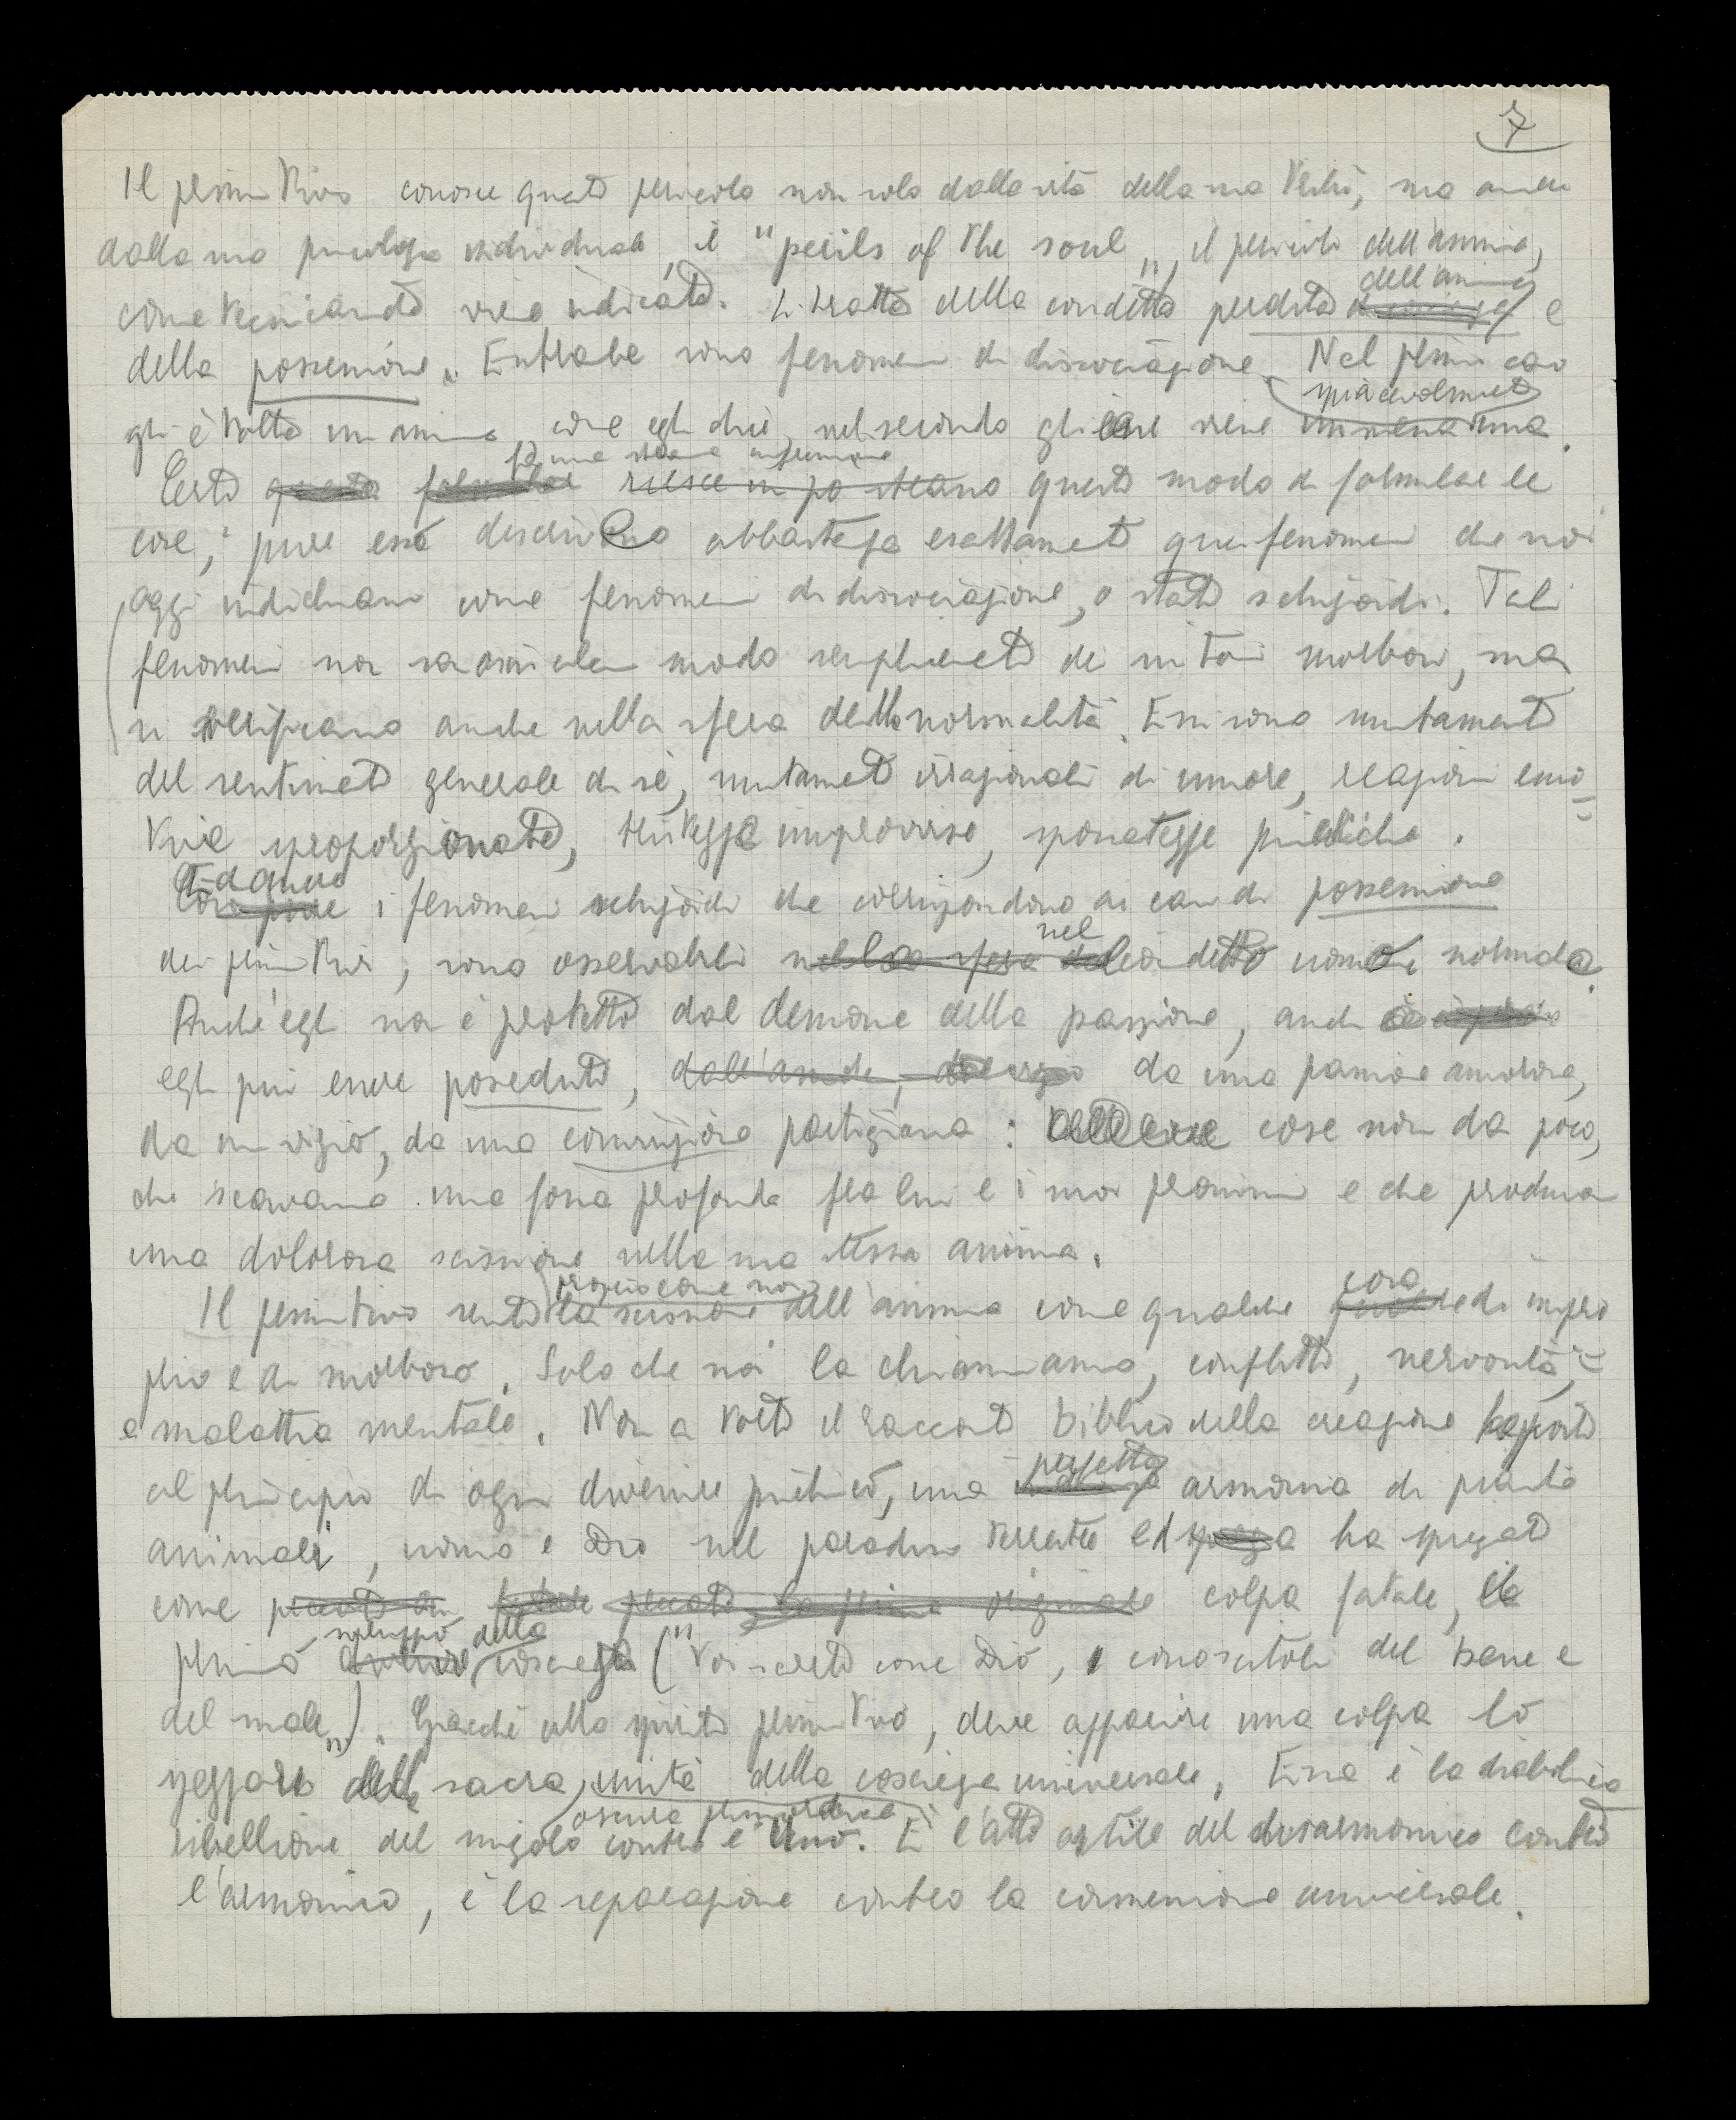 7
Il primitivo conosce questo pericolo non solo dalla vita della sua tribù, ma anche
dalla sua psicologia individuale, è "perils of the soul", il pericolo dell'anima,
come tecnicamente viene indicato. Si tratta della cosidetta perdita dell'anima e
della possessione. Entrambe sono fenomeni di dissociazione. Nel primo caso
gli è tolta un'anima, come egli dice, nel secondo gliene viene spiacevolmente una.
Certo fa una strana impressione questo modo di formulare le
cose, pure esso descrive abbastanza esattamente quei fenomeni che noi
oggi indichiamo come fenomeni di dissociazione, o stati schizoidi. Tali
fenomeni non sono in alcun modo semplicemente dei sintomi morbosi, ma
si verificano anche nella sfera della normalità. Essi sono mutamenti
del sentimento generale di sè, mutamenti irragionali di umore, reazioni emo=
tive sproporzionate, tristezze improvvise, spossatezze psichiche.
Ed anche i fenomeni schizoidi che corrispondono ai casi di possessione
dei primitivi, sono osservabili nel cosidetto uomo normale.
Anch'egli non è protetto dal demone della passione, anch
egli può essere posseduto, da una passione amorosa,
da un vizio, da una convinzione partigiana: cose non da poco,
che scavano una fossa profonda fra lui e i suoi prossimi e che producono
una dolorosa scissione nella sua stessa anima.
Il primitivo sente proprio come noi la scissione dell'anima come qualche cosa di impro
prio e di morboso. Solo che noi la chiamiamo, conflitto, nervosità,
e malattia mentale. Non a torto il racconto biblico della creazione ha posto
al principio di ogni divenire psichico, una perfetta armonia di piante
animali, uomo e Dio nel paradiso terrestre ed ha spiegato
come colpa fatale, il
primo sviluppo della coscienza ("Voi sarete come Dio, conoscitori del bene e
del male"). Giacchè allo spirito primitivo, deve apparire una colpa lo
spezzarsi della sacra unità della coscienza universale, Essa è la diabolica
oscura primordiale
ribellione del singolo contro l'Uno. È l'atto ostile del disarmonico contro
l'armonico, è la separazione contro la connessione universale.